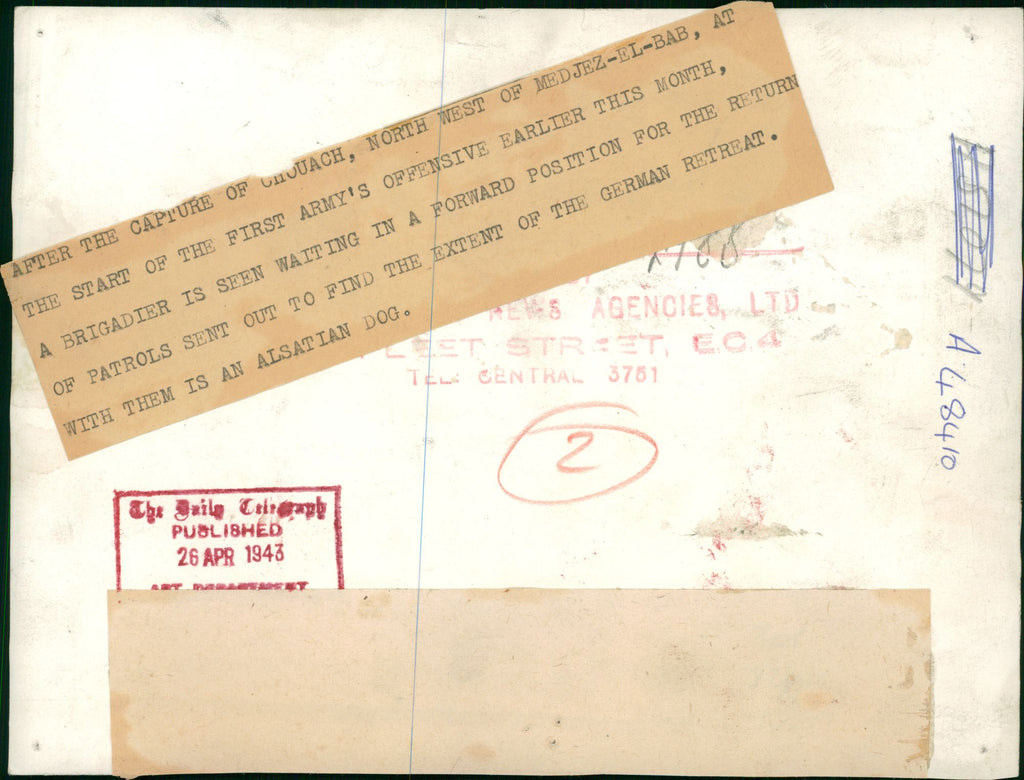 AFTER THE CAPTURE OF CHOUACH, NORTH WEST OF MEDJEZ-EL-BAB, AT
THE START OF THE FIRST ARMY'S OFFENSIVE EARLIER THIS MONTH,
A BRIGADIER IS SEEN WAITING IN A FORWARD POSITION FOR THE RETURN
OF PATROLS SENT OUT TO FIND THE EXTENT OF THE GERMAN RETREAT.
WITH THEM IS AN ALSATIAN DOG.
NEWS AGENCIES, LTD
FLEET STREET, E.C.4
TEL: CENTRAL 3751
2
A 48410
The Daily Telegraph
PUBLISHED
26 APR 1943
ART DEPARTMENT